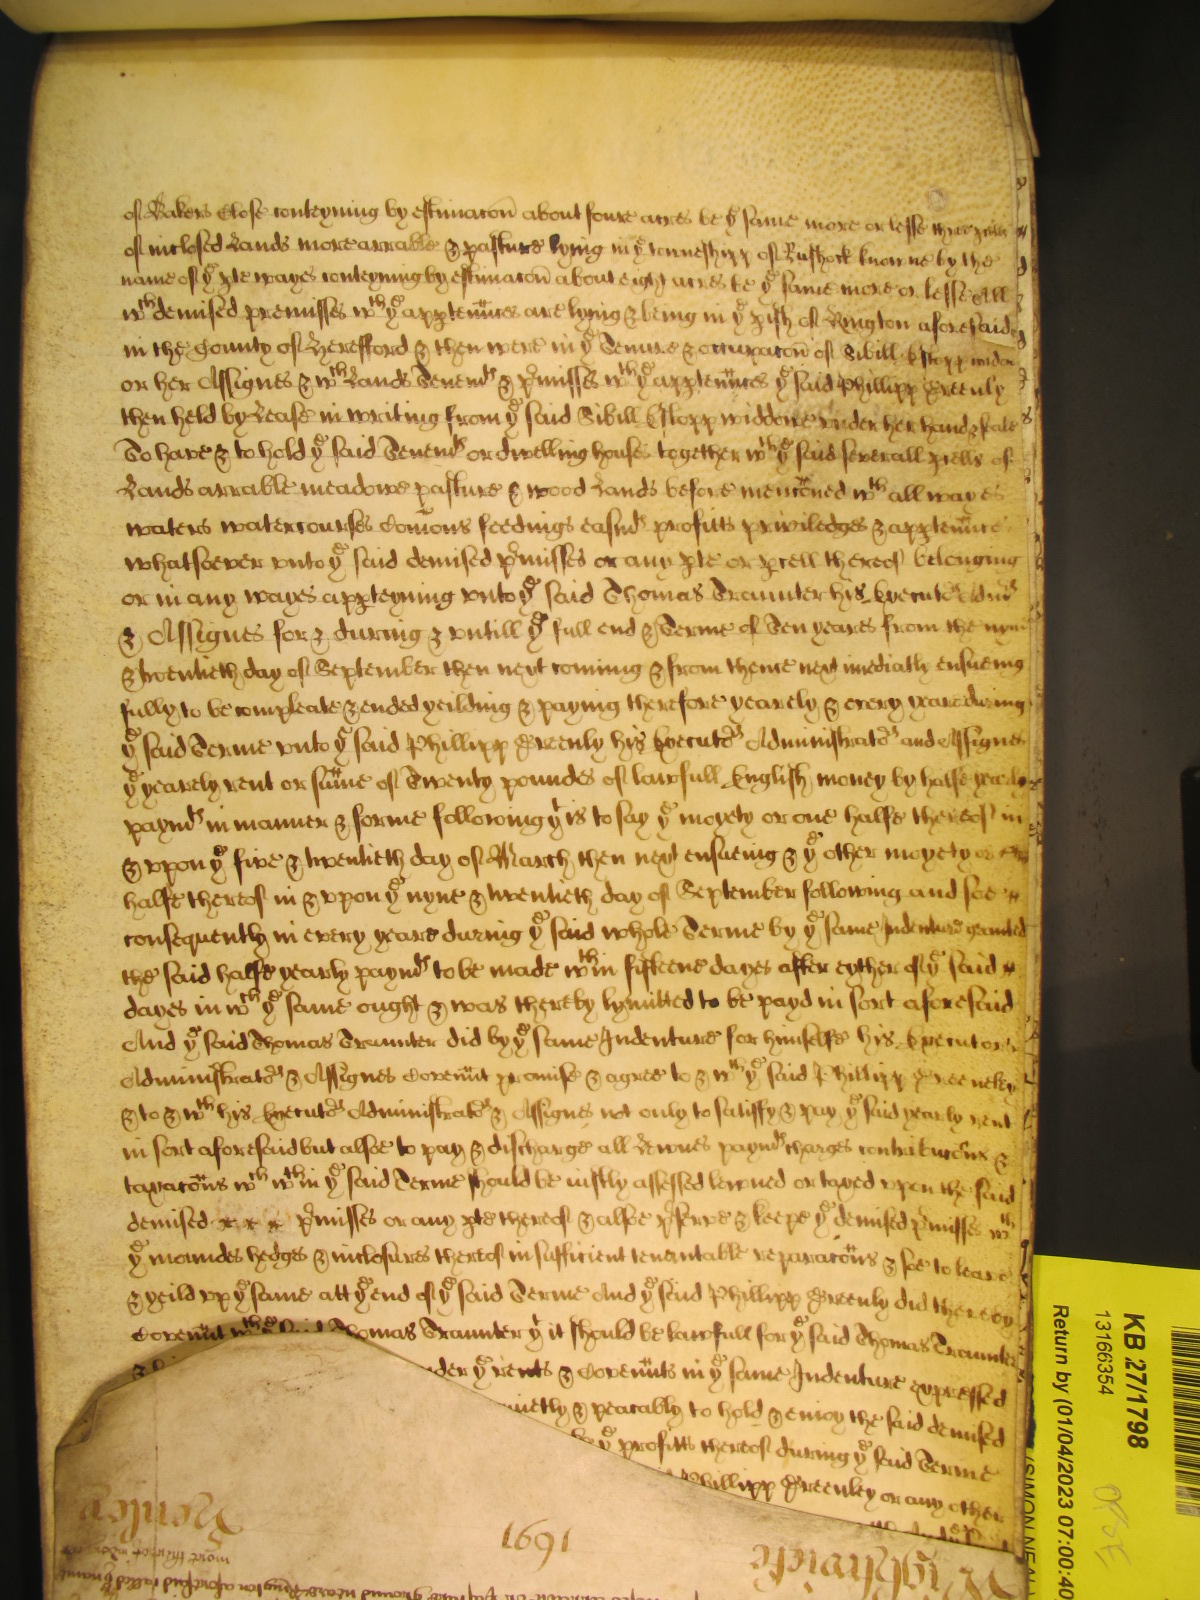 of Bakers Close conteyning by estimacōn about foure acres be yͤ same more or lesse three
of inclosed Lands more arrable & pasture lying in yͤ towneshipp of Rushock knowne by the
name of yͤ wayes conteyning by estimacōn about eight acres be yͤ same more or lesse All
wᵗʰ demised premisses wᵗʰ yͤ apptenñces are lying & being in yͤ pish of Kington aforesaid
in the County of Herefford & then were in yͤ Tenure & occupacōn of Sibill widdow
or her Assignes & wᵗʰ Lands Tenemᵗˢ & p̃misses wᵗʰ yͤ apptenñces yͤ said Phillipp Greenly
then held by Lease in writing from yͤ said Sibill widdowe vnder her hand & seale
To have & to hold yͤ said Tenemᵗ or dwelling house together wᵗʰ yͤ said severall pcells of
Lands arrable meadowe pasture & wood Lands before menc̃oned wᵗʰ all wayes
waters watercourses Com̃ons feedings easmᵗˢ profitts priviledges & apptenñce
whatsoever vnto yͤ said demised p̃misses or any pte or pcell thereof belonging
or in any wayes appteyning vnto yͤ said Thomas Traunter his Executoͬˢ Admͬˢ
& Assignes for & during & vntill yͤ full end & Terme of Ten yeares from the nyne
& twentieth day of September then next coming & from thence next imediatly ensueing
fully to be compleate & ended yeilding & paying therefore yearely & every yeare during
yͤ said Terme vnto yͤ said Phillipp Greenly his Executoͬˢ Administratoͬˢ and Assignes
yͤ yearely rent or sum̃e of Twenty poundes of lawfull English money by halfe yearely
paymᵗˢ in manner & forme following yᵗ is to say yͤ moyety or one halfe thereof in
& vpon yͤ five & twentieth day of March then next ensueing & yͤ other moyety or
halfe thereof in & vpon yͤ nyne & twentieth day of September following and soe
consequently in every yeare during yͤ said whole Terme by yͤ same Indenture granted
the said halfe yearly paymᵗˢ to be made wᵗʰin fifteene dayes after eyther of yͤ said
dayes in wᶜʰ yͤ same ought & was thereby lymitted to be payd in sort aforesaid
And yͤ said Thomas Traunter did by yͤ same Indenture for himselfe his Executors
Administratoͬˢ & Assignes Coveñnt promise & agree to & wᵗʰ yͤ said Phillipp Greeneley
& to & wᵗʰ his Executoͬˢ Administratoͬˢ & Assignes not only to satisfy & pay yͤ said yearly rent
in sort aforesaid but alsoe to pay & discharge all Lewnes paymᵗˢ charges contribuc̃ons &
taxac̃ons wᶜʰ wᵗʰin yͤ said Terme should be iustly assessed lewned or taxed vpon the said
demised x x x p̃misses or any pte thereof & alsoe p̃serve & keepe yͤ demised p̃misses wᵗʰ
yͤ moundes hedges & inclosures thereof in sufficient tenantable reparac̃ons & soe to leave
& yeild vp yͤ same att yͤ end of yͤ said Terme And yͤ said Phillipp Greenly did thereby
Coveñnt wᵗʰ yͤ said Thomas Traunter yᵗ it should be lawfull for yͤ said Thomas Traunter
vnder yͤ rents & Coveñnts in yͤ same Indenture expressed
quietly & peacably to hold & enioy the said demised
yͤ profitts thereof during yͤ said Terme
Phillipp Greenley or any other
1691
KB 27/1798
13166354
Return by (01/04/2023 07:00:40